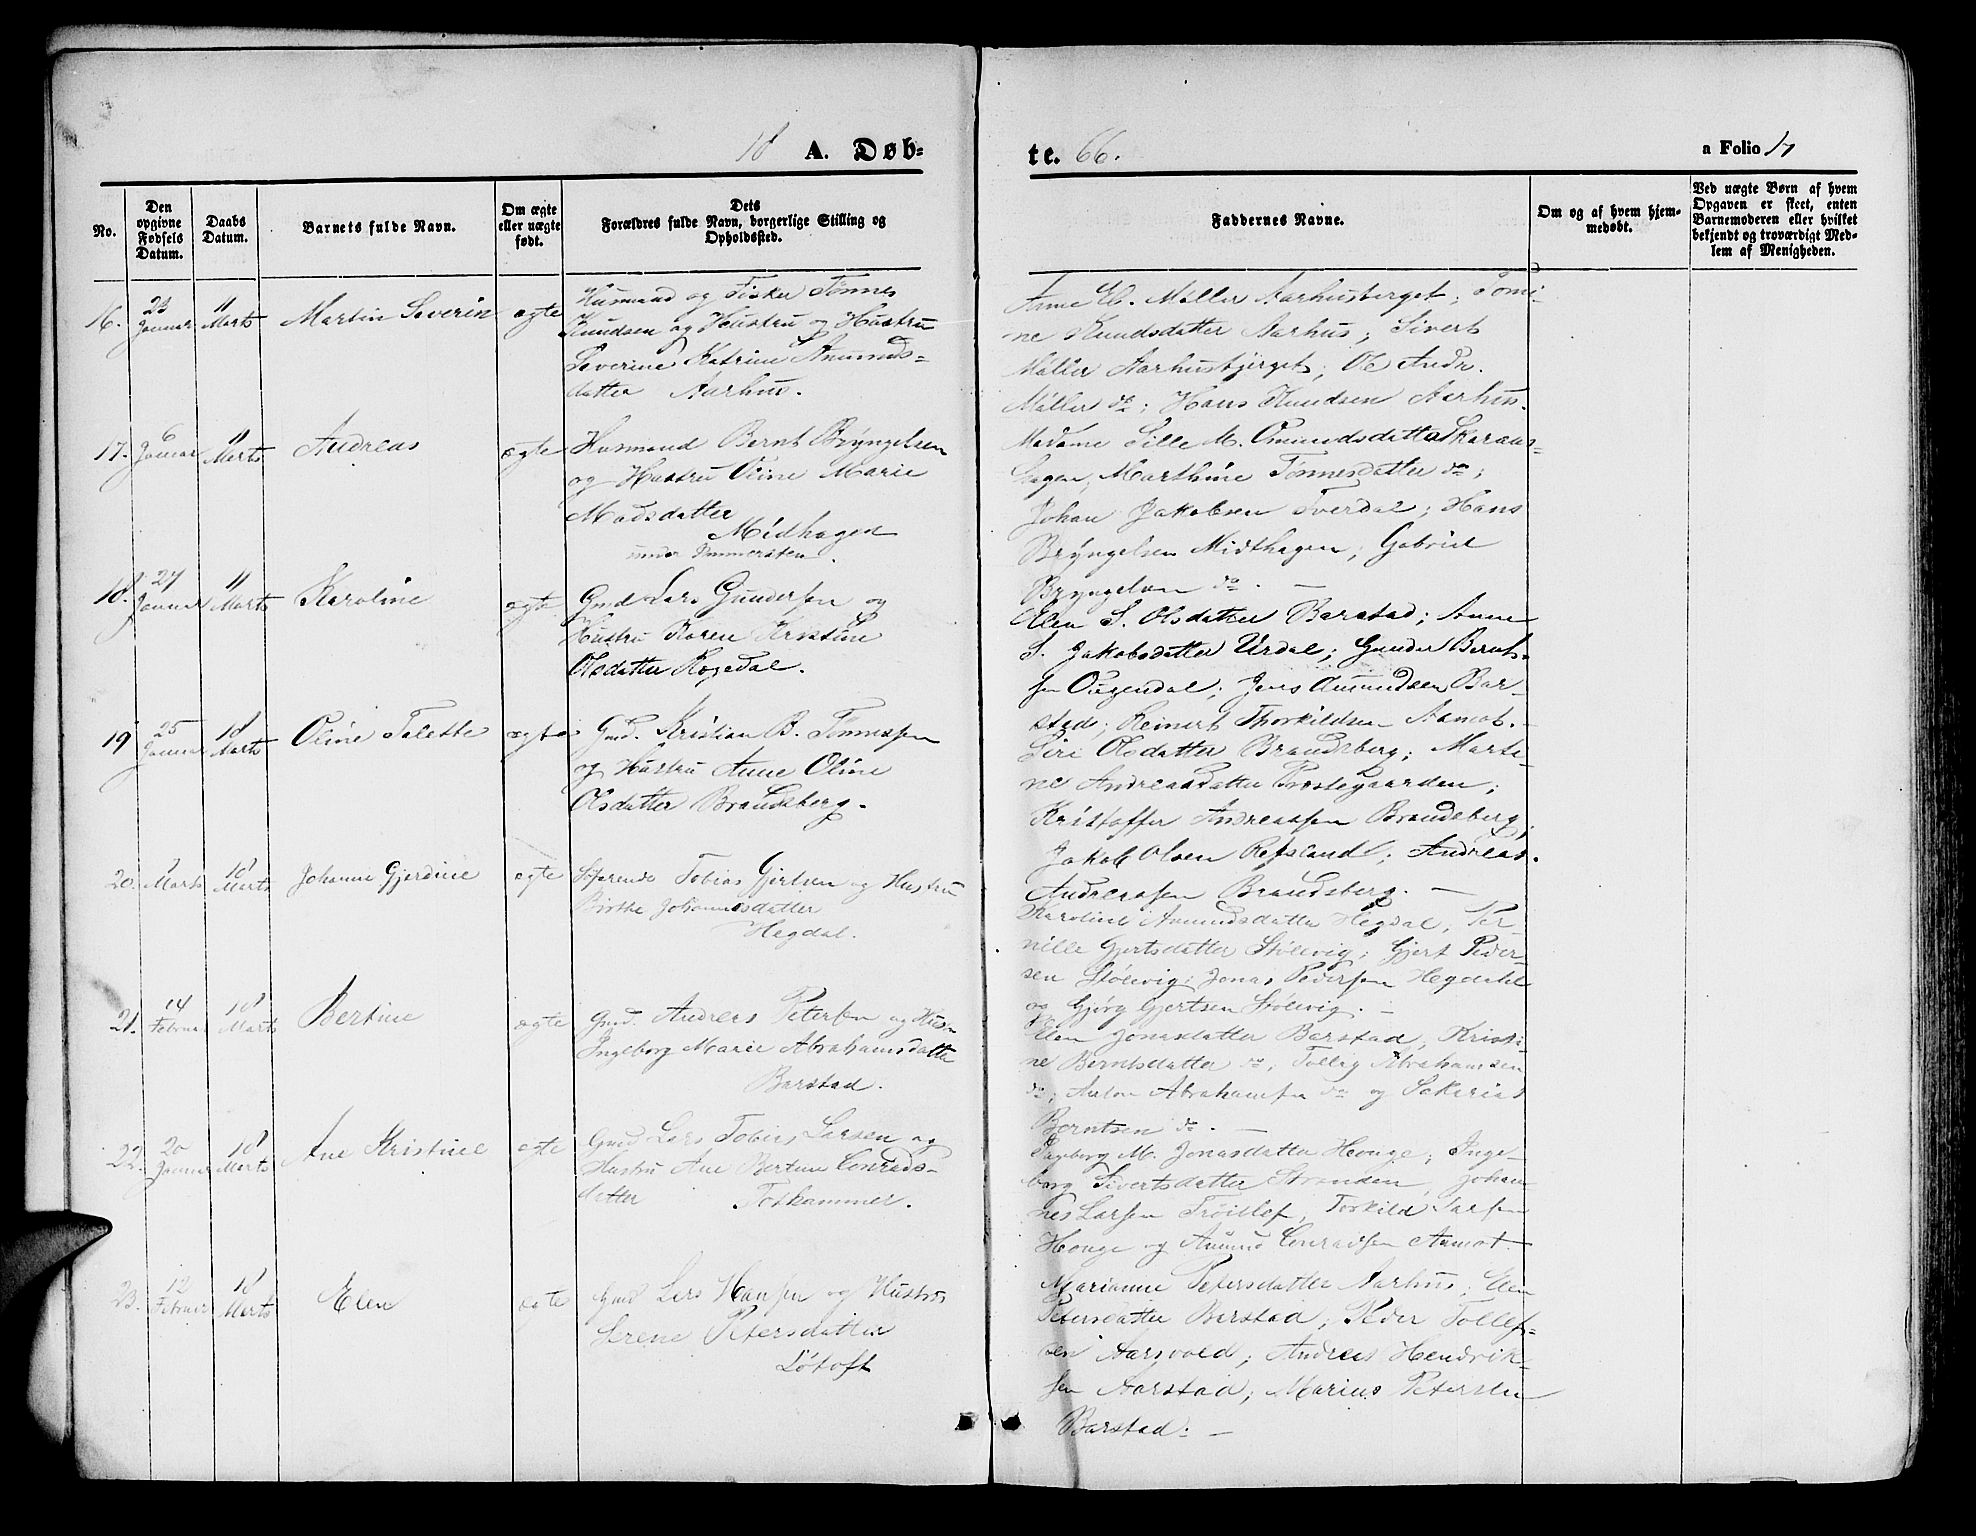 18 A. Døb-
te. 66.
a Folio 17
No.
Den opgivne Fødsels Datum.
Daabs Datum.
Barnets fulde Navn.
Om ægte eller uægte født.
Dets Forældres fulde Navn, borgerlige Stilling og Opholdssted.
Faddernes Navne.
Om og af hvem hjemmedøbt.
Ved uægte Børn af hvem Opgaven er skeet, enten Barnemoderen eller hvilket bekjendt og troværdigt Medlem af Menigheden.
16. 23 Januar 11 Marts Martin Severin ægte
Husmand og Fisker Tønnes
Knudsen og Hustru og Hustru
Severine Katrine Amunds-
datter Aarhus.
Anne El. Møller Aarhusberget; Tomi-
ne Knudsdatter Aarhus; Sivert
Møller Aarhusbjerget; Ole Andr.
Møller do; Hans Knudsen Aarhus.
17. 6 Januar 11 Marts Andreas ægte
Husmand Bernt Bryngelsen
og Hustru Oline Marie
Madsdatter
Midhagen
under
Madame Sille M. Omundsdatter
hagen; Marthine Tønnesdatter do;
Johan Jakobsen Tverdal; Hans
Bryngelsen Midthagen; Gabriel
Bryngelsen do. —
18. 27 Januar 11 Marts Karoline ægte
Gmd Lars Gundersen og
Hustru Karen Kristine
Olsdatter Rogedal.
Elen S. Olsdatter Barstad; Anne
S. Jakobsdatter Urdal; Gunder Bernt-
sen; Jens Amundsen Bar-
stad; Reinert Thorkildsen Aamot.
19 25 Januar 18 Marts Oline Talette ægte
Gmd. Kristian B. Tønnessen
og Hustru Anne Oline
Olsdatter Brandsberg.
Siri Olsdatter Brandsberg; Marti-
ne Andreasdatter Præstegaarden;
Kristoffer Andreassen Brandsberg,
Jakob Olsen Refsland; Andreas
Andreassen Brandsberg. —
20. 9 Marts 18 Marts Johanne Gjerdine ægte
Søfarende Tobias Gjertsen og Hustru
Birthe Johannesdatter
Hegdal.
Karoline Amundsdatter Hegdal, Per-
nille Gjertsdatter Stølevig; Gjert Peder-
sen Stølevig; Jonas Pedersen Hegdahl
og Gjørg Gjertsen Stølevig. —
21. 14 Februar 18 Marts Bertine ægte
Gmd. Andreas Petersen og Hustru
Ingeborg Marie Abrahamsdatter
Barstad.
Elen Jonasdatter Barstad, Kristi-
ne Berntsdatter do; Tollag Abrahamsen
do; Anton Abrahamsen do og Sakarias
Berntsen do. —
22. 20 Januar 18 Marts Ane Kristine ægte
Gmd Lars Tobias Larsen og
Hustru Ane Bertine Conrads-
datter Foskammer.
Ingeborg M. Jonasdatter Houge; Inge-
borg Sivertsdatter Stranden, Johan-
nes Larsen, Torkild Larsen
Houge og Amund Conradsen Aamot.
23. 12 Februar 18 Marts Elen ægte
Gmd Lars Hansen og Hustru
Serene Petersdatter
Løtoft
Marianne Petersdatter Aarhus; Elen
Petersdatter Barstad; Peder Tollef-
sen Aarsvold; Andreas Hendrik-
sen Aarstad; Marius Petersen
Barstad. —